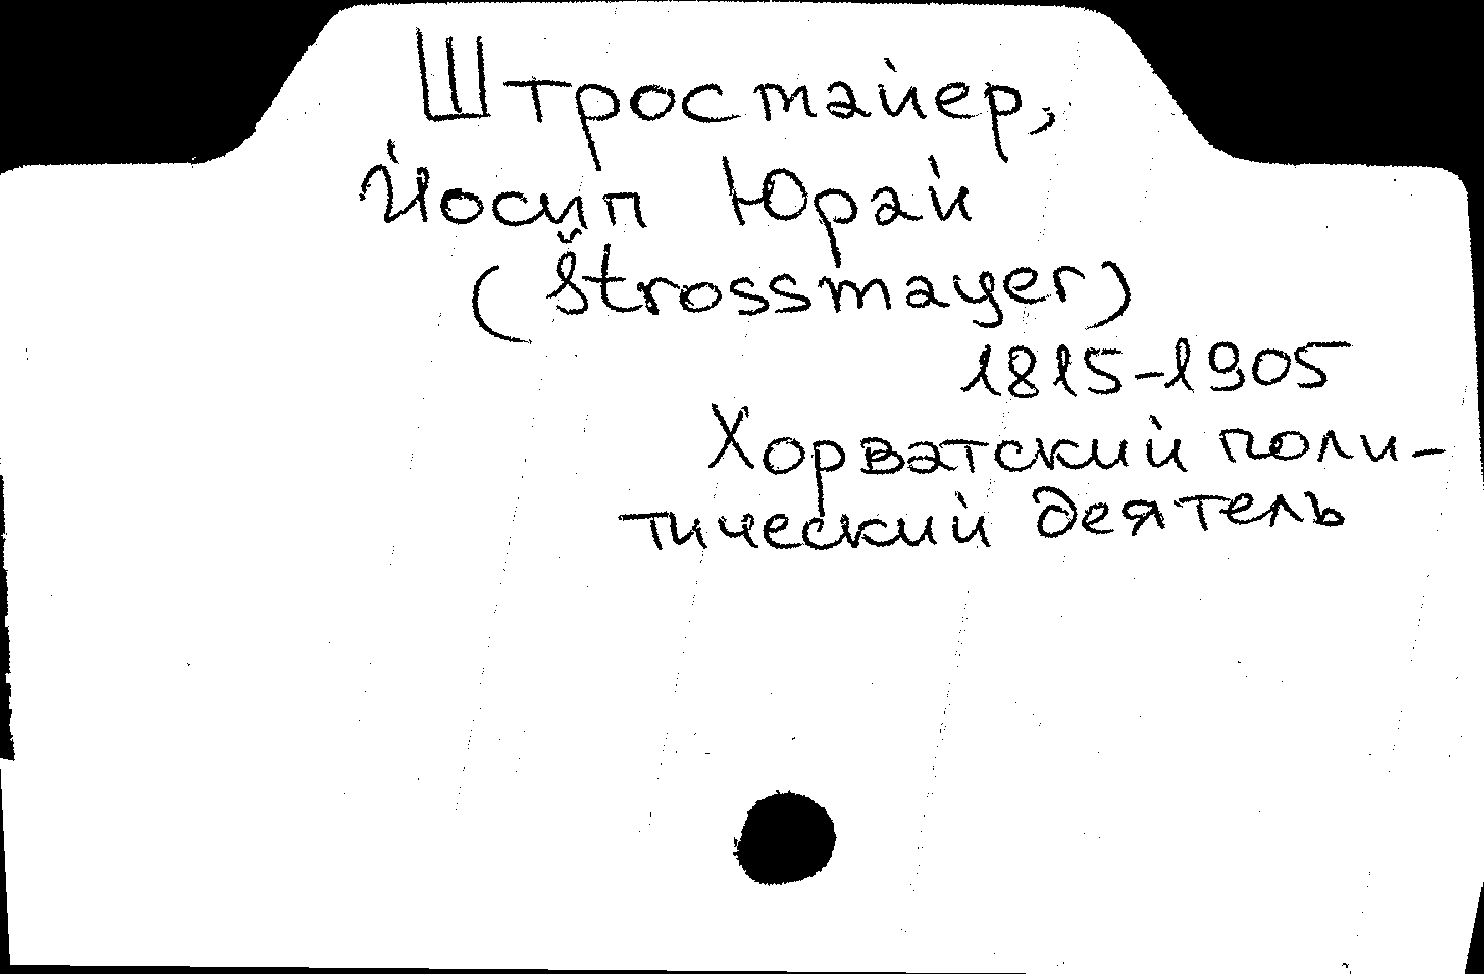 Штростмайер,
Йосип Юрай
(Štrossmayer)
1815-1905
Хорватский поли-
тический деятель